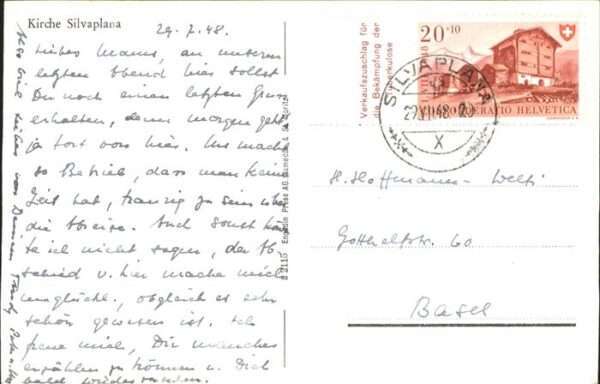 Kirche Silvaplana
29.7.48.
Liebes Mams, an unserem
letzten Abend hier sollst
Du noch einen letzten Gruss
erhalten, denn morgen geht
ja fort von hier. Uns macht
so Betrieb, dass man keine
Zeit hat, traurig zu sein über
die Abreise. Auch sonst
te ich nicht sagen, der Ab-
schied v. hier mache mich
unglückl., obgleich es sehr
schön gewesen ist. Ich
freue mich, Dir manches
erzählen zu können u. Dich
bald wiederzusehen.
Alles
von Deinem
Verkaufszuschlag für
die Bekämpfung der
Tuberkulose
20+10
PRO PATRIA
HELVETIA
SILVAPLANA
29.VII.48-20
X
H. Hoffmann-Welti
Gotthelfstr. 60
Basel